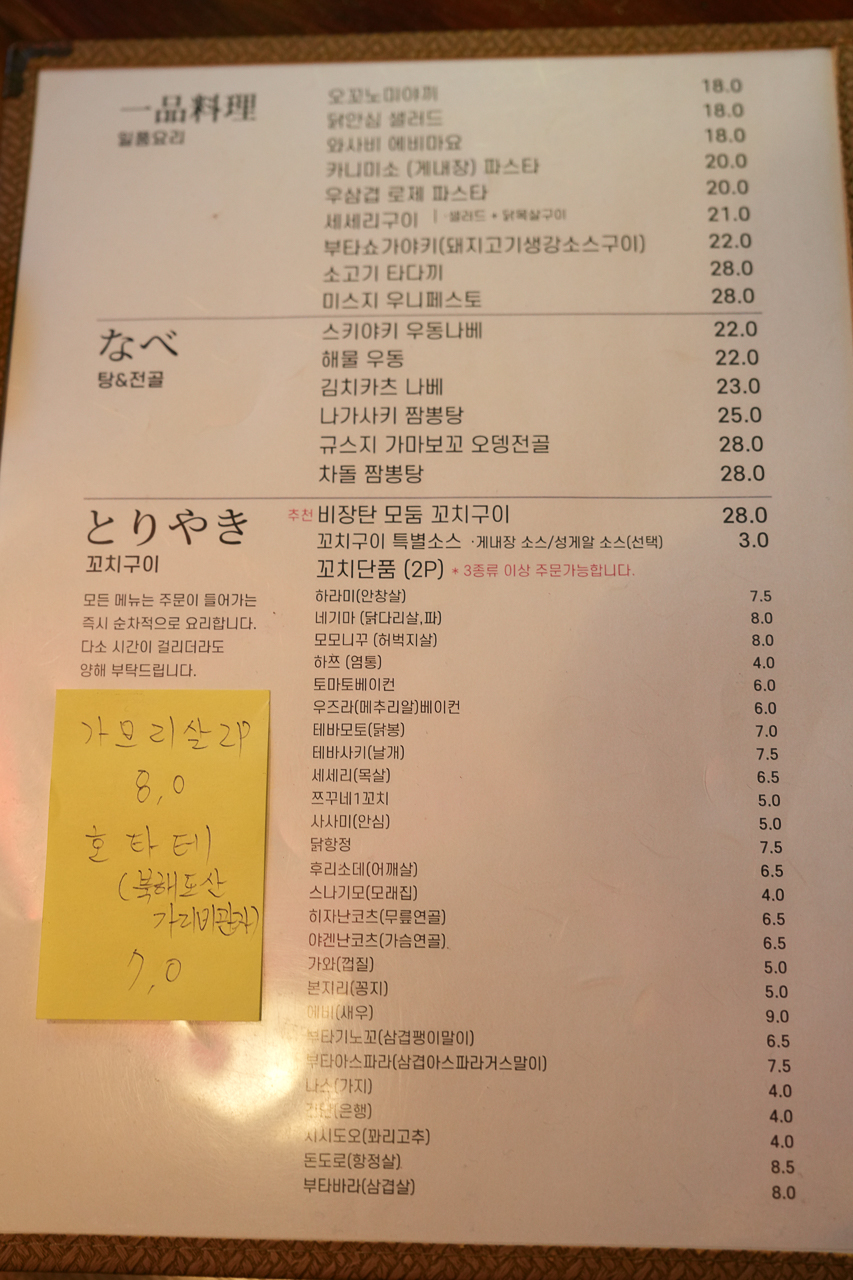 一品料理
일품요리
오꼬노미야끼 18.0
닭안심 샐러드 18.0
와사비 에비마요 18.0
카니미소 (게내장) 파스타 20.0
우삼겹 로제 파스타 20.0
세세리구이 | ·샐러드 + 닭목살구이 21.0
부타쇼가야키(돼지고기생강소스구이) 22.0
소고기 타다끼 28.0
미스지 우니페스토 28.0
なべ
탕&전골
스키야키 우동나베 22.0
해물 우동 22.0
김치카츠 나베 23.0
나가사키 짬뽕탕 25.0
규스지 가마보꼬 오뎅전골 28.0
차돌 짬뽕탕 28.0
とりやき
꼬치구이
모든 메뉴는 주문이 들어가는
즉시 순차적으로 요리합니다.
다소 시간이 걸리더라도
양해 부탁드립니다.
추천 비장탄 모둠 꼬치구이 28.0
꼬치구이 특별소스 ·게내장 소스/성게알 소스(선택) 3.0
꼬치단품 (2P) * 3종류 이상 주문가능합니다.
하라미(안창살) 7.5
네기마 (닭다리살,파) 8.0
모모니꾸 (허벅지살) 8.0
하쯔 (염통) 4.0
토마토베이컨 6.0
우즈라(메추리알)베이컨 6.0
테바모토(닭봉) 7.0
테바사키(날개) 7.5
세세리(목살) 6.5
쯔꾸네1꼬치 5.0
사사미(안심) 5.0
닭항정 7.5
후리소데(어깨살) 6.5
스나기모(모래집) 4.0
히자난코츠(무릎연골) 6.5
야겐난코츠(가슴연골) 6.5
가와(껍질) 5.0
본지리(꽁지) 5.0
에비(새우) 9.0
부타기노꼬(삼겹팽이말이) 6.5
부타아스파라(삼겹아스파라거스말이) 7.5
나스(가지) 4.0
긴난(은행) 4.0
시시도오(꽈리고추) 4.0
돈도로(항정살) 8.5
부타바라(삼겹살) 8.0
가브리살 2P
8,0
호타테
(북해도산
가리비관자)
7,0